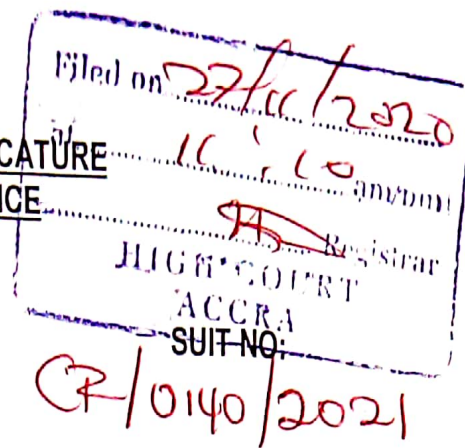 Filed on 27/11/2020
at 11:10 am/pm
CATURE
ICE
Registrar
HIGH COURT
ACCRA
SUIT NO:
CR/0140/2021